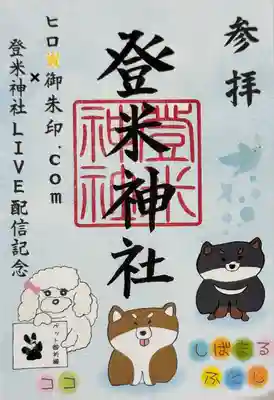 参拝
登米神社
登米
神社
ヒロ御朱印.com
×
登米神社LIVE配信記念
ココ
しばまる
ふとし